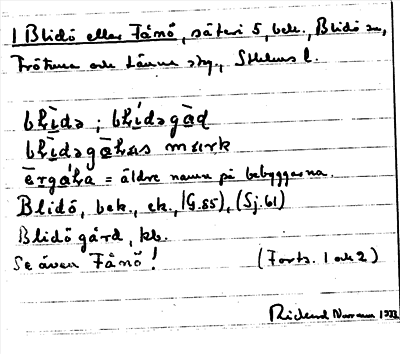 1 Blidö eller Fånö, säteri 5, bek., Blidö sn,
Frötuna och Länna skg., Sthlms l.
blìdə; blídəgàd
blìdəgàhas mark
ärgáha = äldre namn på bebyggarna.
Blidö, bek., ek., (G.55), (Sj.61)
Blidö gård, kb.
Se även Fånö! (Forts. 1 och 2)
Rickard